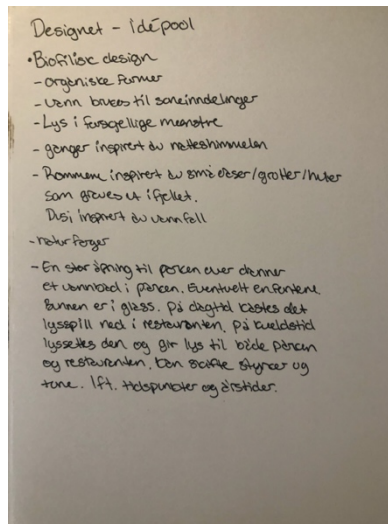 Designet - idépool
• Biofilisk design
- organiske former
- vann brukes til soneinndelinger
- Lys i forskjellige mønstre
- ganger inspirert av nattehimmelen
- Rommene inspirert av små oaser/grotter/huler
som graves ut i fjellet.
Dusj inspirert av vannfall
- naturfarger
- En stor åpning til parken over danner
et vannbad i parken. Eventuelt en fontene.
Bunnen er i glass. På dagtid kastes det
lysspill ned i restauranten. På kveldstid
lyssettes den og gir lys til både parken
og restauranten. Kan skifte styrker og
tone. Ift. tidspunkter og årstider.